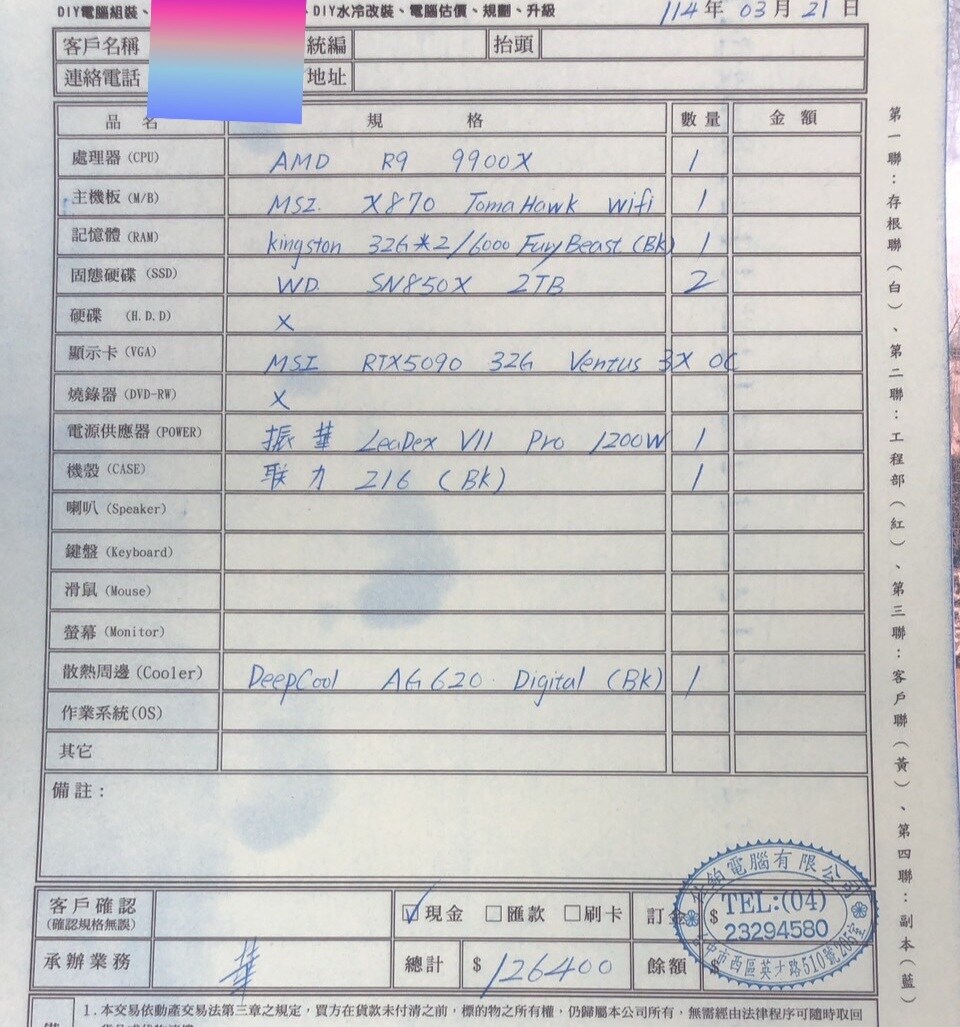 DIY電腦組裝、
、DIY水冷改裝、電腦估價、規劃、升級
114年 03月 21日
客戶名稱 統編 抬頭
連絡電話 地址
品名 規格 數量 金額
處理器(CPU) AMD R9 9900X 1
主機板(M/B) MSI X870 TomaHawk wifi 1
記憶體(RAM) kingston 32G*2/6000 FuryBeast (Bk) 1
固態硬碟(SSD) WD SN850X 2TB 2
硬碟(H.D.D) X
顯示卡(VGA) MSI RTX5090 32G Ventus 3X OC
燒錄器(DVD-RW) X
電源供應器(POWER) 振華 LeaDex VII Pro 1200W 1
機殼(CASE) 联力 216 (Bk) 1
喇叭(Speaker)
鍵盤(Keyboard)
滑鼠(Mouse)
螢幕(Monitor)
散熱周邊(Cooler) DeepCool AG620 Digital (Bk) 1
作業系統(OS)
其它
備註:
第一聯:存根聯(白)、第二聯:工程部(紅)、第三聯:客戶聯(黃)、第四聯:副本(藍)
客戶確認 ☑現金 □匯款 □刷卡 訂金 $
(確認規格無誤)
承辦業務 華 總計 $ 126400 餘額 $
鉑電腦有限公司
TEL:(04)
23294580
中市西區英才路510號
備
1.本交易依動產交易法第三章之規定,買方在貸款未付清之前,標的物之所有權,仍歸屬本公司所有,無需經由法律程可隨時取回